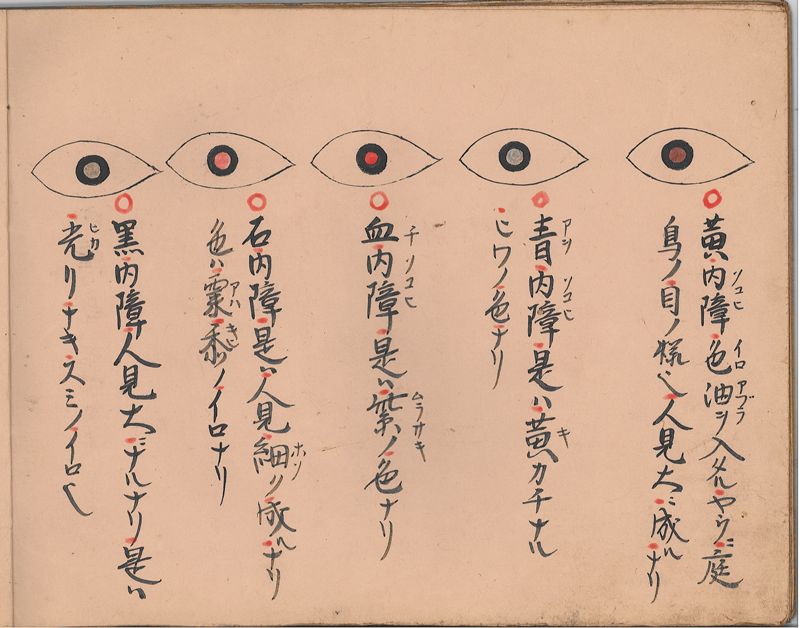 黄内障色油ヲ入タルヤウニ庭
鳥ノ目ノ様也人見大ニ成ルナリ
青内障是ハ黄カチナル
ヒワノ色ナリ
血内障是ハ紫ノ色ナリ
石内障是ハ人見細ク成ルナリ
色ハ粟黍ノイロナリ
黒内障人見大ニナルナリ是ハ
光リナキスミノイロ也